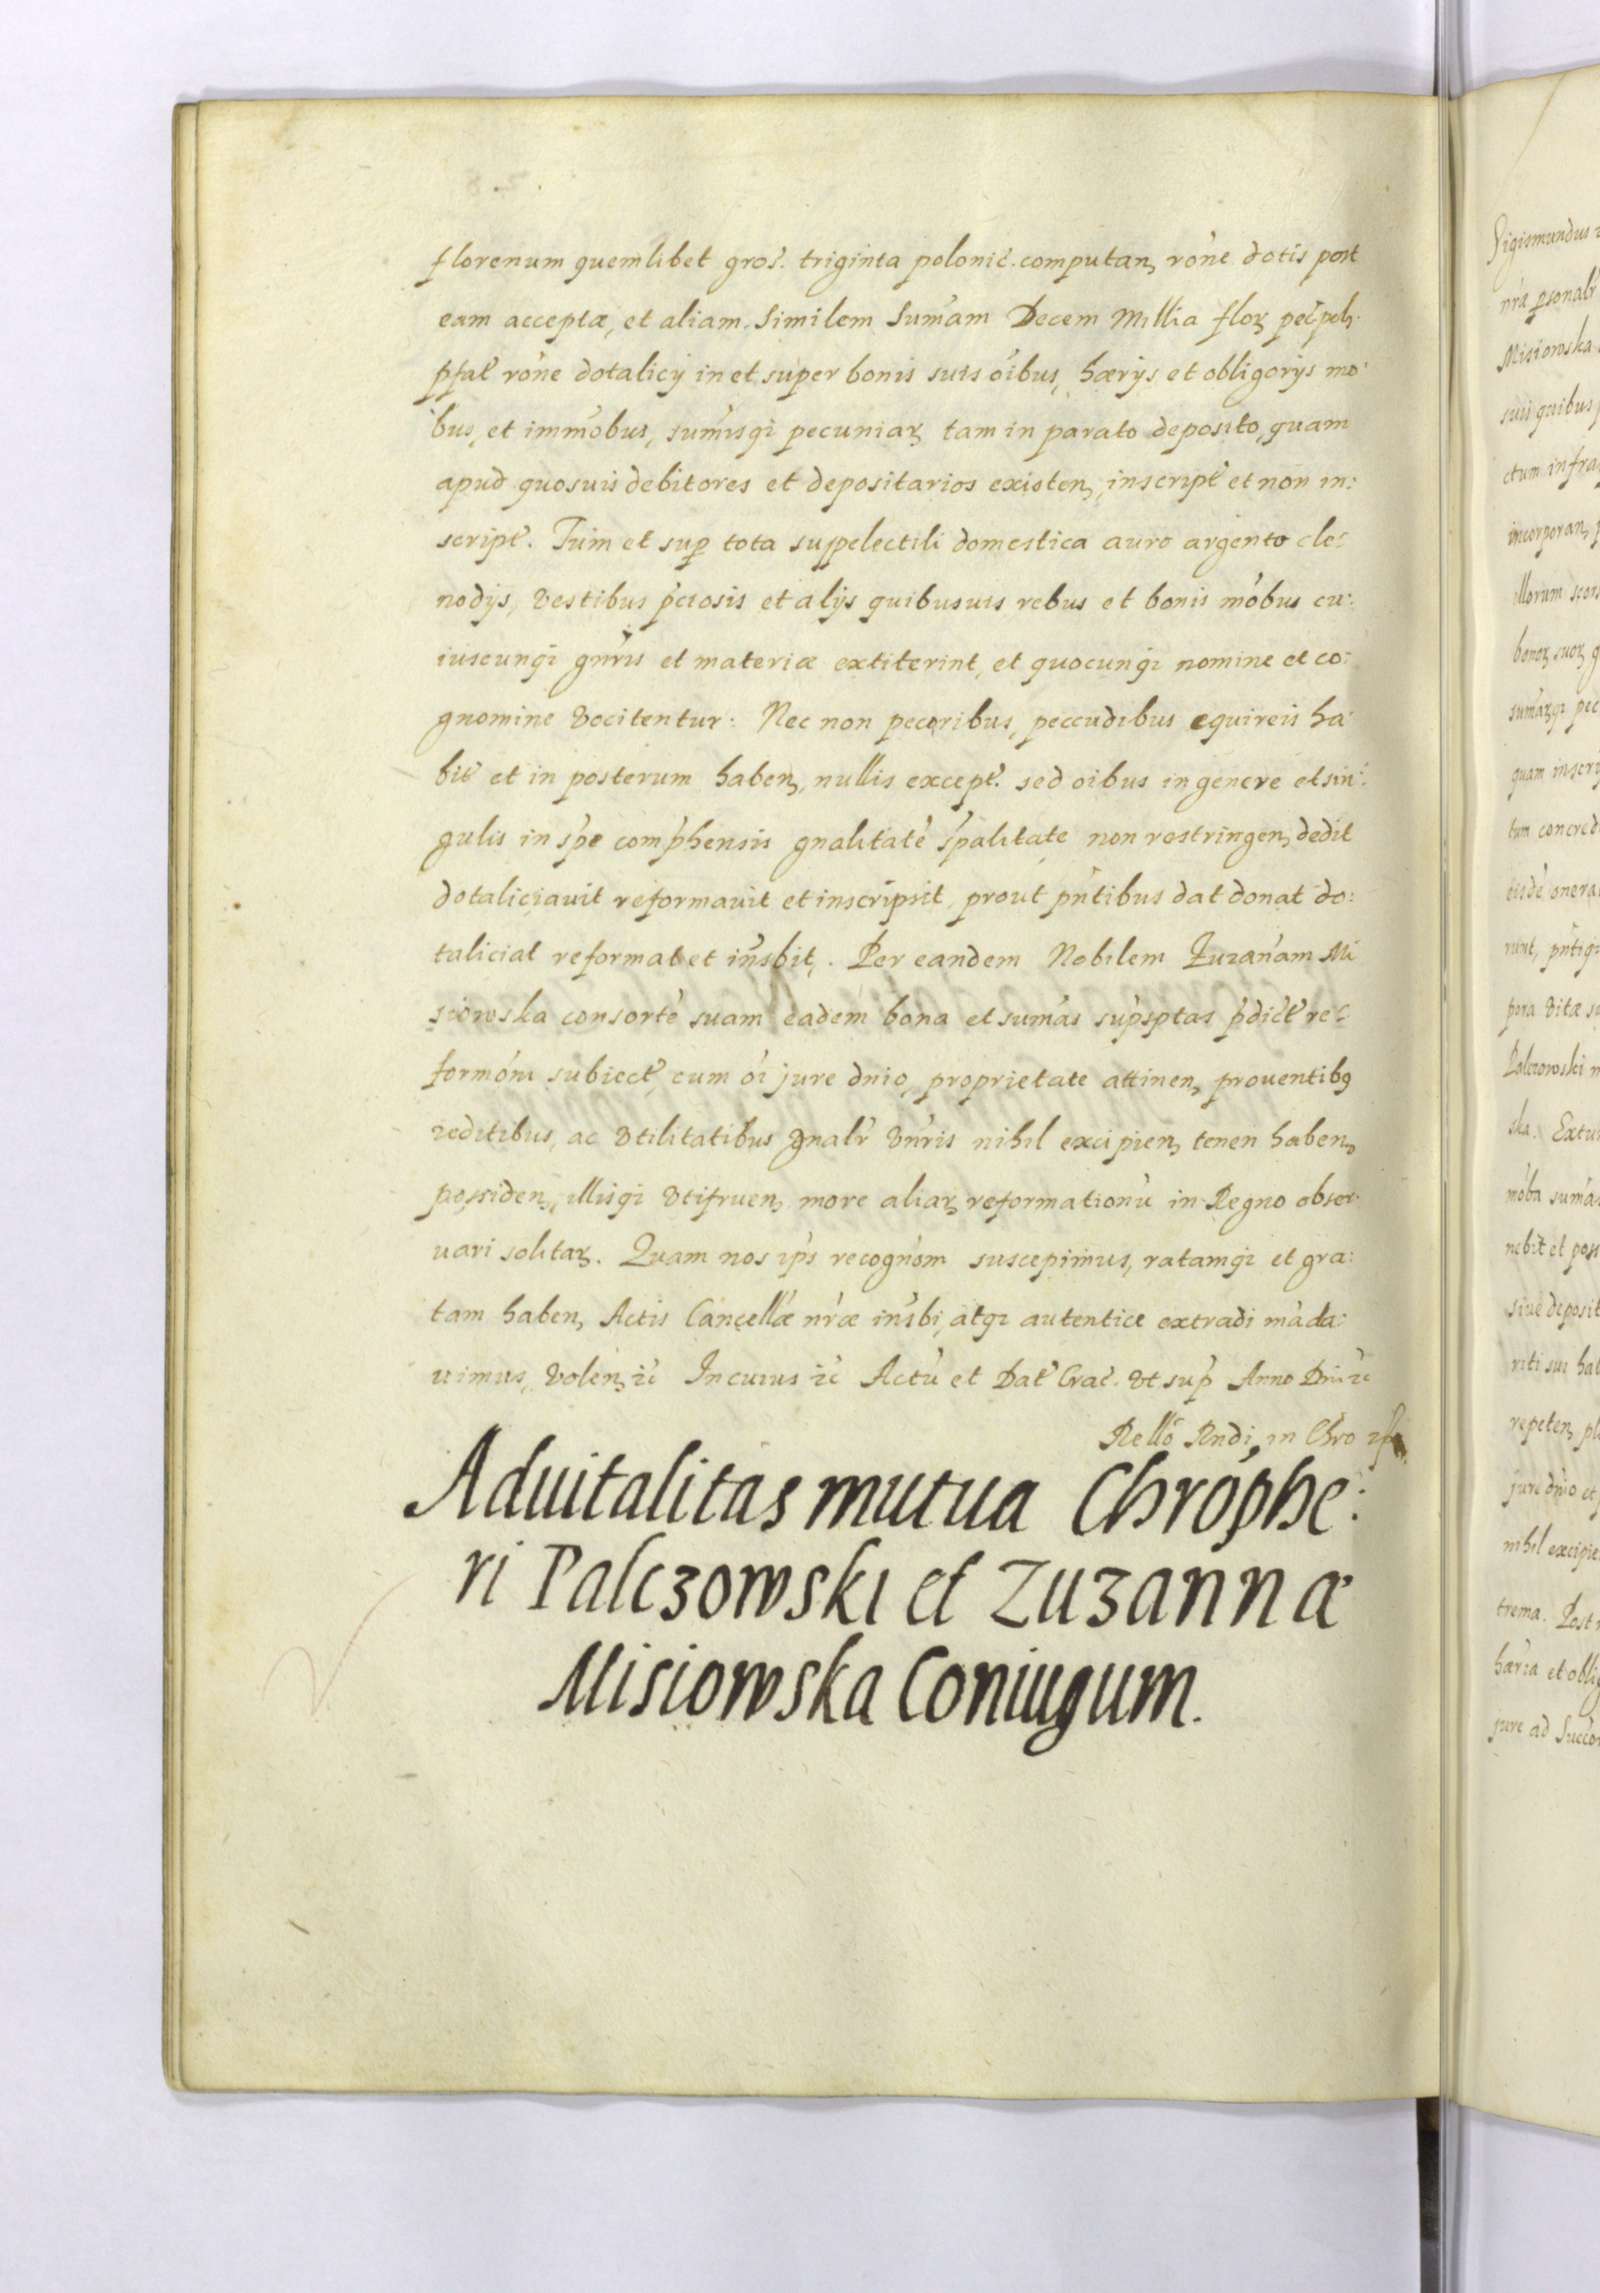 florenum quemlibet gros. triginta polonic. computan, rone dotis post
eam acceptæ, et aliam similem sumam Decem Millia flor pec pol.
pfat rone dotalicij in et super bonis suis oibus, hærijs et obligorijs mo:
bus, et immobus, sumisqi pecuniar tam in parato deposito, quam
apud quosuis debitores et depositarios existen, inscript et non in:
script. Tum et sup tota suppelectili domestica auro argento cle:
nodijs, vestibus pciosis et alijs quibusuis rebus et bonis mobus cu:
iuscunqi gnris et materiæ extiterint, et quocunqi nomine et co:
gnomine vocitentur: Nec non pecoribus, peccudibus equireis ha:
bit et in posterum haben, nullis except. sed oibus in genere et sin:
gulis in spe comphensis gnalitate spalitate non restringen, dedit
dotaliciauit reformauit et inscripsit, prout pntibus dat donat do:
taliciat reformat et insbit. Per eandem Nobilem Zuzanam Mi
siowska consorte suam eadem bona et sumas supsptas pdict re:
formoni subiect, cum oi jure dnio, proprietate attinen, prouentibq
reditibus, ac vtilitatibus gnalr vnris nihil excipien, tenen haben,
possiden, illisqi vtifruen, more aliar reformationu in Regno obser:
uari solitar. Quam nos ips recognom suscepimus, ratamqi et gra:
tam haben, Actis Cancellæ nræ insbi, atqi autentice extradi mada:
uimus, volen, &c In cuius &c Actu et Dat Crac. vt sup Anno Dni &c
Rello Rndi in Chro
Aduitalitas mutua Chrophe:
ri Palczowski et Zuzannæ
Misiowska Coniugum.
Sigismundus
nra psonalr
Misiowska
suis quibus
ctum infra
incorporan,
illorum
bonor suor
sumarqi pec
quam inscri
tum concred
eisde onera
runt, pntiqi
pora vitæ
Palczowski
ska. Extu
moba suma
nebit et poss
siue deposit
riti sui hab
repeten,
jure dnio et
nihil excipie
trema. Post
hæria et obli
jure ad Succo